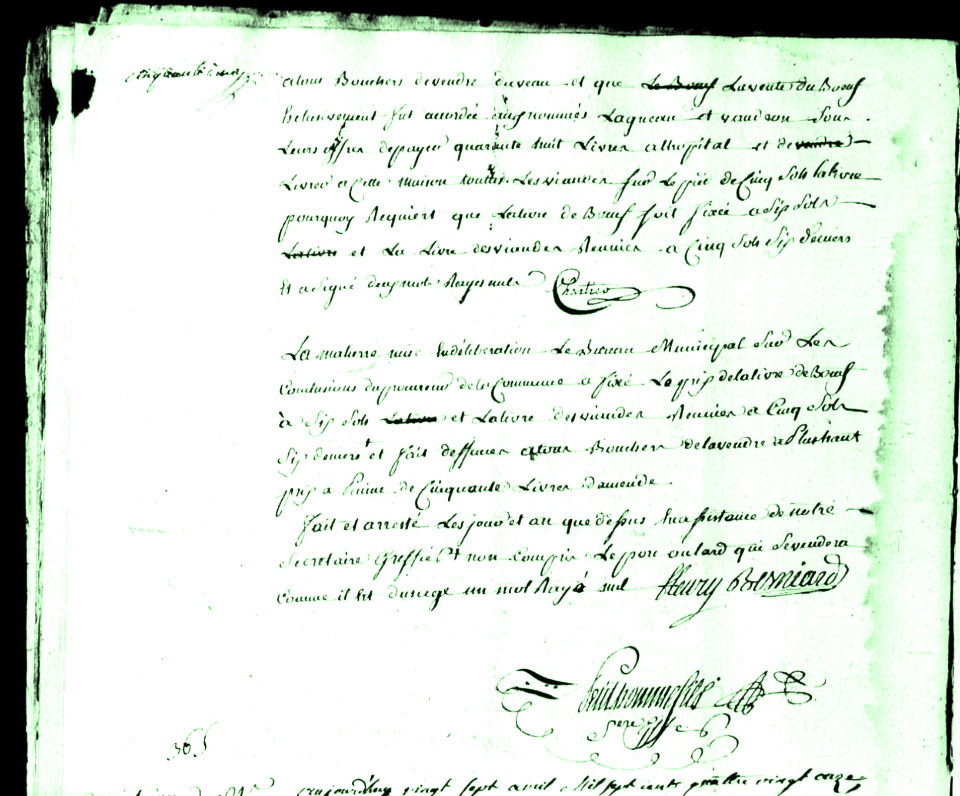 atous Bouchers devendre duveau et que Le Bœuf Lavente du Bœuf
Exclusivement fut accordée nommés Laqueau et vaudron sous
Leurs offres depayer quarante huit Livres alhopital et de vendre
Livrer a Cette maison touttes Lesviandes sur Le pié de Cinq Sols lalivre
pourquoy Requiert que Lalivre de Bœuf soit fixée a Six Sols
Lalivre et La Livre desviandes Reunies a Cinq Sols Six deniers
Et a signé deux mots Rayes nuls
La matierre mise Endéliberation Le Bureau Municipal Sur Les
Conclusions duprocureur dela Commune a fixé Le prix delalivre de Bœuf
à Six Sols Lalivre et Lalivre desviandes Reunies a Cinq Sols
Six deniers et fait deffences atous Bouchers delavendre a Plushaut
prix a Peinne de Cinquante Livres damende
Fait et arresté Les jour et an que dessus En assistance de notre
Secretaire Greffier et non Compris Le porc oulard qui Sevendera
Comme il Est dusage un mot Rayé nul fleury Besniard
Secre greffe
365
aujourdhuy vingt sept avril Mil sept cents quattre vingt onze